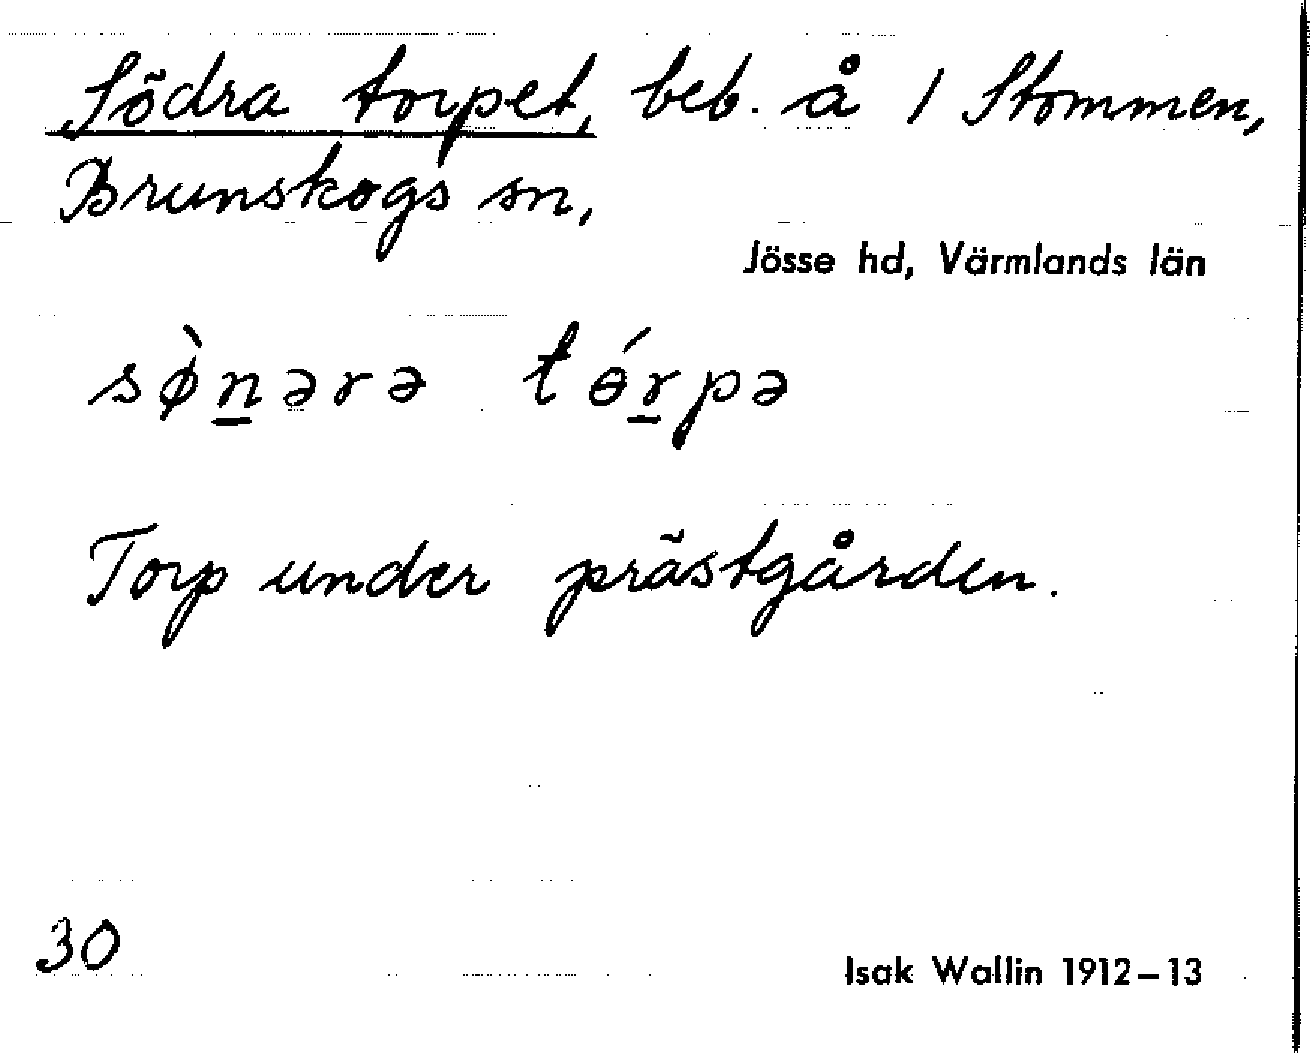 Södra torpet, beb. å 1 Stommen,
Brunskogs sn,
Jösse hd, Värmlands län
sø̀n̲ərə tɵ́r̲pə
Torp under prästgården.
30
Isak Wallin 1912–13